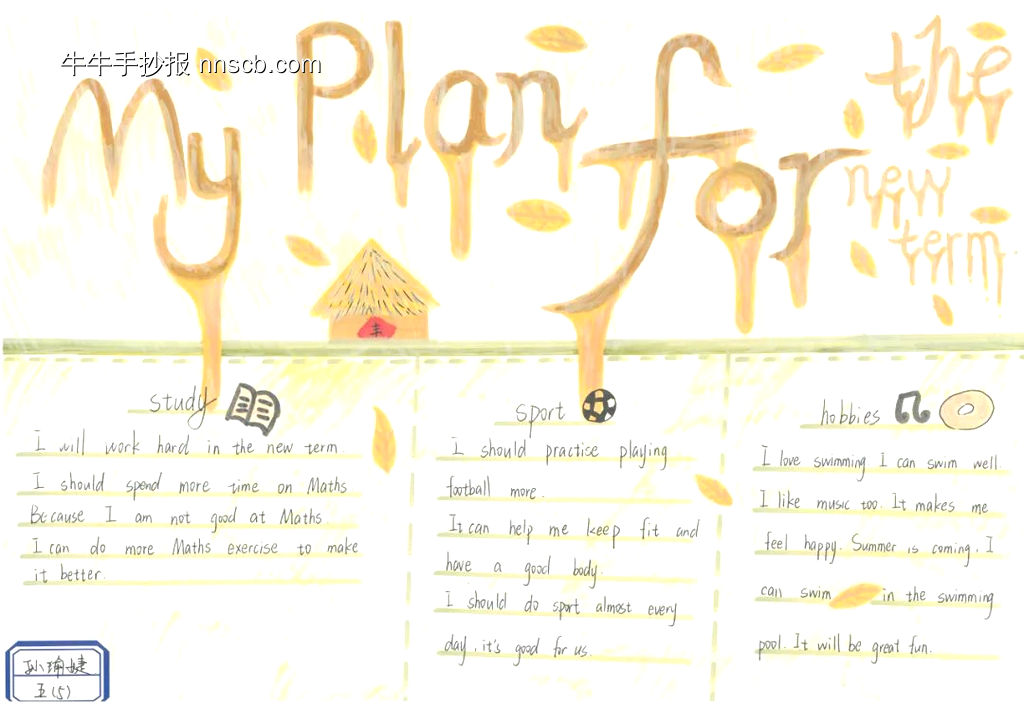 牛牛手抄报 nnscb.com
My Plan for the
new
term
丰
study
I will work hard in the new term
I should spend more time on Maths
Because I am not good at Maths.
I can do more Maths exercise to make
it better.
sport
I should practise playing
football more.
It can help me keep fit and
have a good body.
I should do sport almost every
day, it's good for us.
hobbies
I love swimming I can swim well.
I like music too. It makes me
feel happy. Summer is coming, I
can swim in the swimming
pool. It will be great fun.
孙瑜婕
五(5)